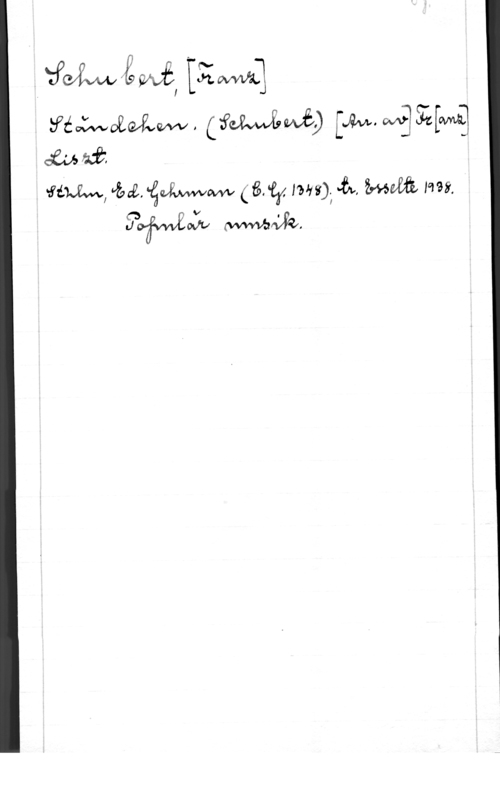 Schubert, [Franz]
Ständchen. (Schubert.) [Arr. av] Fr[anz]
Liszt.
Sthlm, Ed. Gehrman (E. G. 1348), tr. Esselte 1938.
Populär musik.